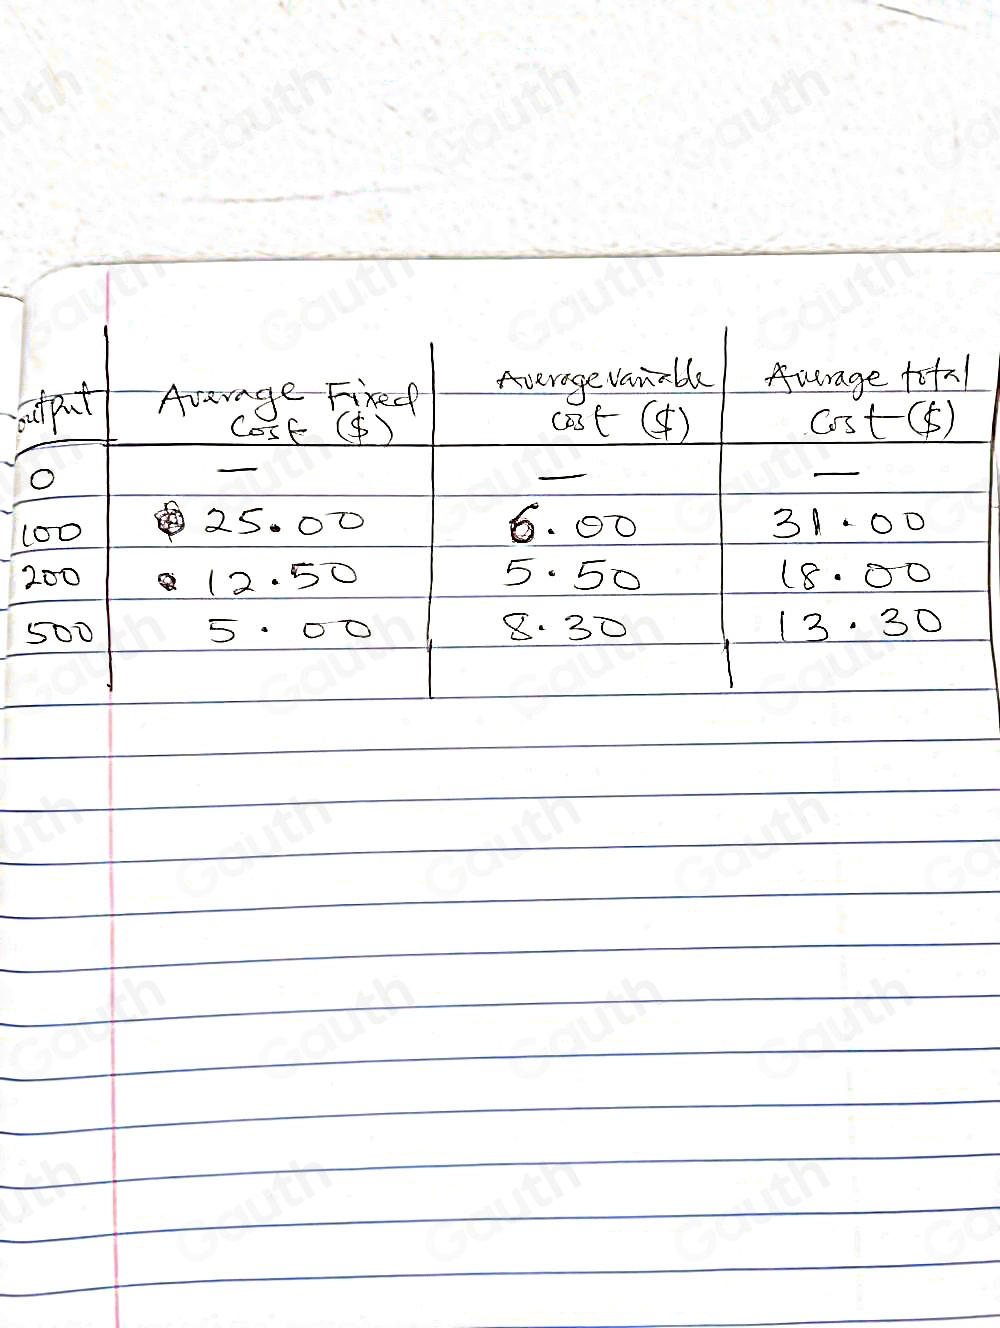 output | Average Fixed Cost ($) | Average variable cost ($) | Average total Cost ($)
0 | — | — | —
100 | 25.00 | 6.00 | 31.00
200 | 12.50 | 5.50 | 18.00
500 | 5.00 | 8.30 | 13.30